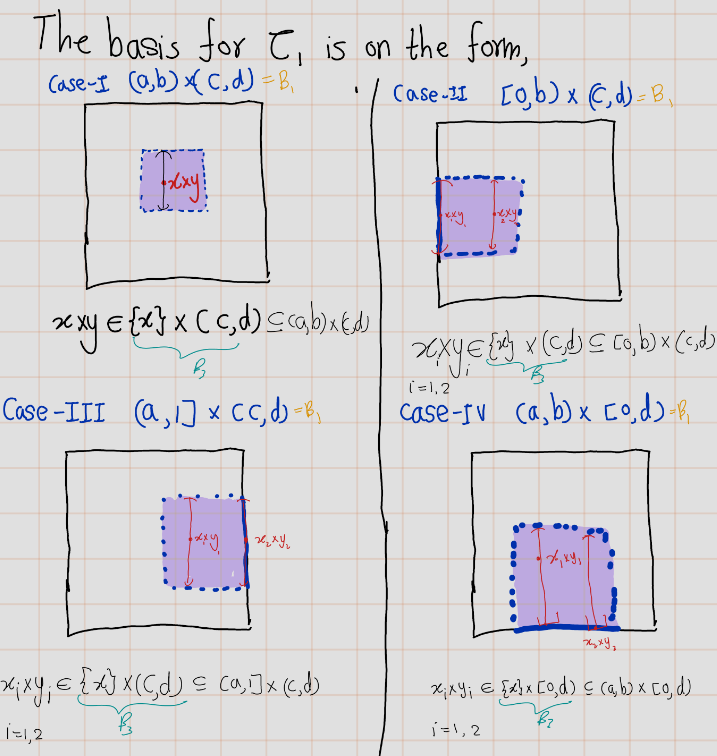 The basis for τ₁ is on the form,
Case-I (a,b)×(c,d) = B₁
x×y
x×y ∈ {x} × (c,d) ⊆ (a,b)×(c,d)
B₃
Case-II [0,b) × (c,d) = B₁
x×y₁ x×y₂
x×y_i ∈ {x} × (c,d) ⊆ [0,b) × (c,d)
B₃
i=1,2
Case-III (a,1] × (c,d) = B₁
x₁×y₁ x₂×y₂
x_i×y_i ∈ {x} × (c,d) ⊆ (a,1] × (c,d)
B₃
i=1,2
Case-IV (a,b) × [0,d) = B₁
x₁×y₁
x₂×y₂
x_i×y_i ∈ {x} × [0,d) ⊆ (a,b) × [0,d)
B₂
i=1,2